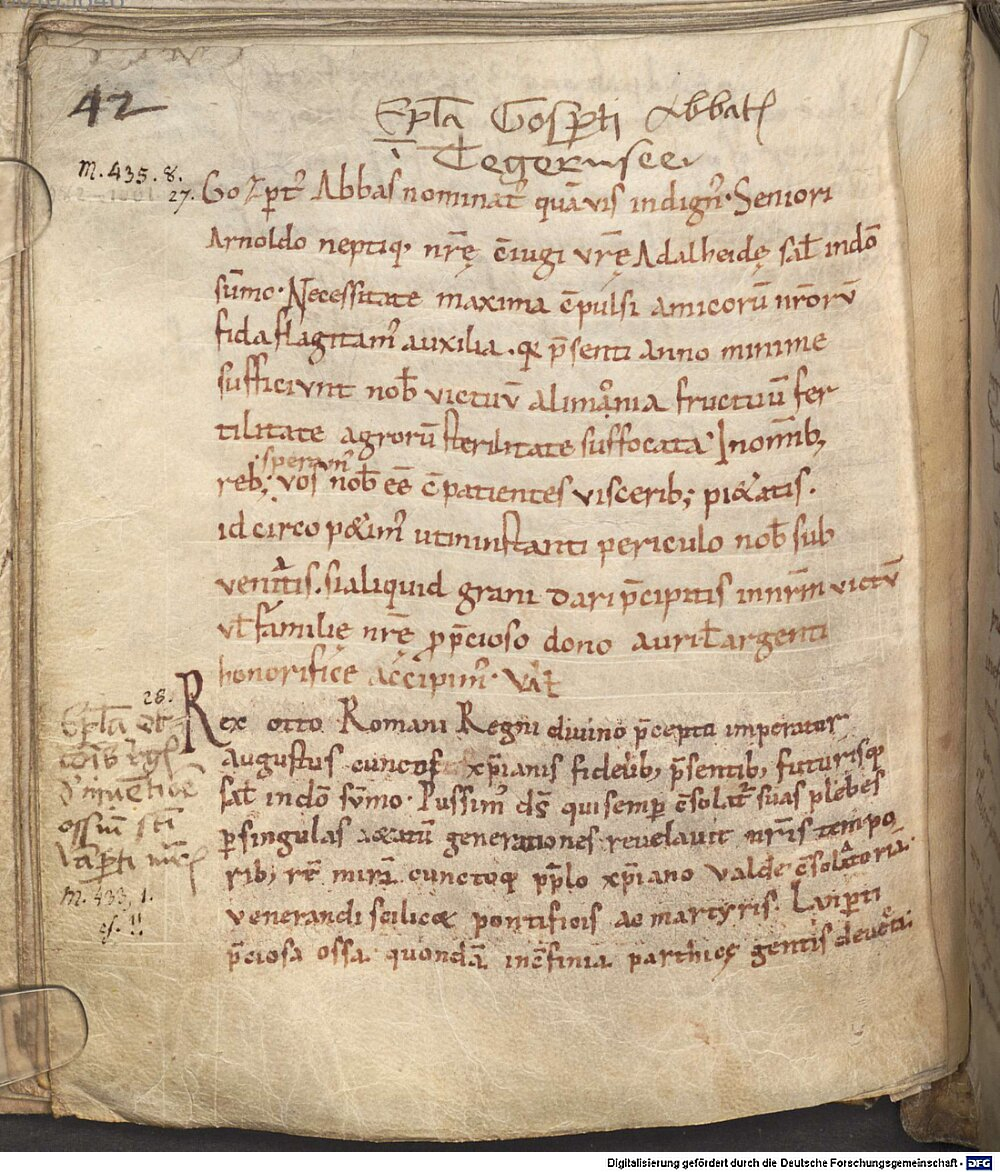 42
Epła Gosꝑti Abbatꝭ
Tegernsee
m. 435. 8.
27. Gozꝑt᷒ Abbas nominat᷒ quāvis indign᷒. Seniori
Arnoldo neptiq; nr̄ę c̄iugi vr̄ę Adalheidę sal̄ indn̄o
sum̄o. Necessitate maxima c̄pulsi amicorū nr̄orū
fida flagitam᷒ auxilia. qꝛ p̄senti anno minime
sufficiunt nob̄ victuū alimonia fructuū fer
tilitate agrorū sterilitate suffocata. In om̄ib;
reb; vos speram᷒ nob̄ eē c̄patientes viscerib; pi&atis.
id circo p&im᷒ ut in instanti periculo nob̄ sub
veniatis. si aliquid grani dari p̄cipitis in nr̄m victū
vł familię nr̄ę ꝓ p̄cioso dono auri vł argenti
honorifice accipim᷒. Vał
28.
Rex otto Romani Regni divino p̄cepto imperator
augustus cunctis xp̄ianis fidelib; p̄sentib; futurisq;
sal̄ in dn̄o sum̄o. Piissim᷒ ds̄ qui semꝑ c̄solat᷒ suas plebes
ꝑ singulas &atū generationes revelavit nr̄is tempo
rib; rē mirā cunctoq; pp̄lo xp̄iano valde c̄solatoriā.
venerandi scilic& pontificis ac martyris. Lanꝑti
p̄ciosa ossa. quondā in c̄finia parthicę gentis
Epła Ot
tonis Rgꝭ
d' inuentiōe
ossiū sc̄i
Laꝑti
m. 433, 1.
cf. !!
Digitalisierung gefördert durch die Deutsche Forschungsgemeinschaft - DFG